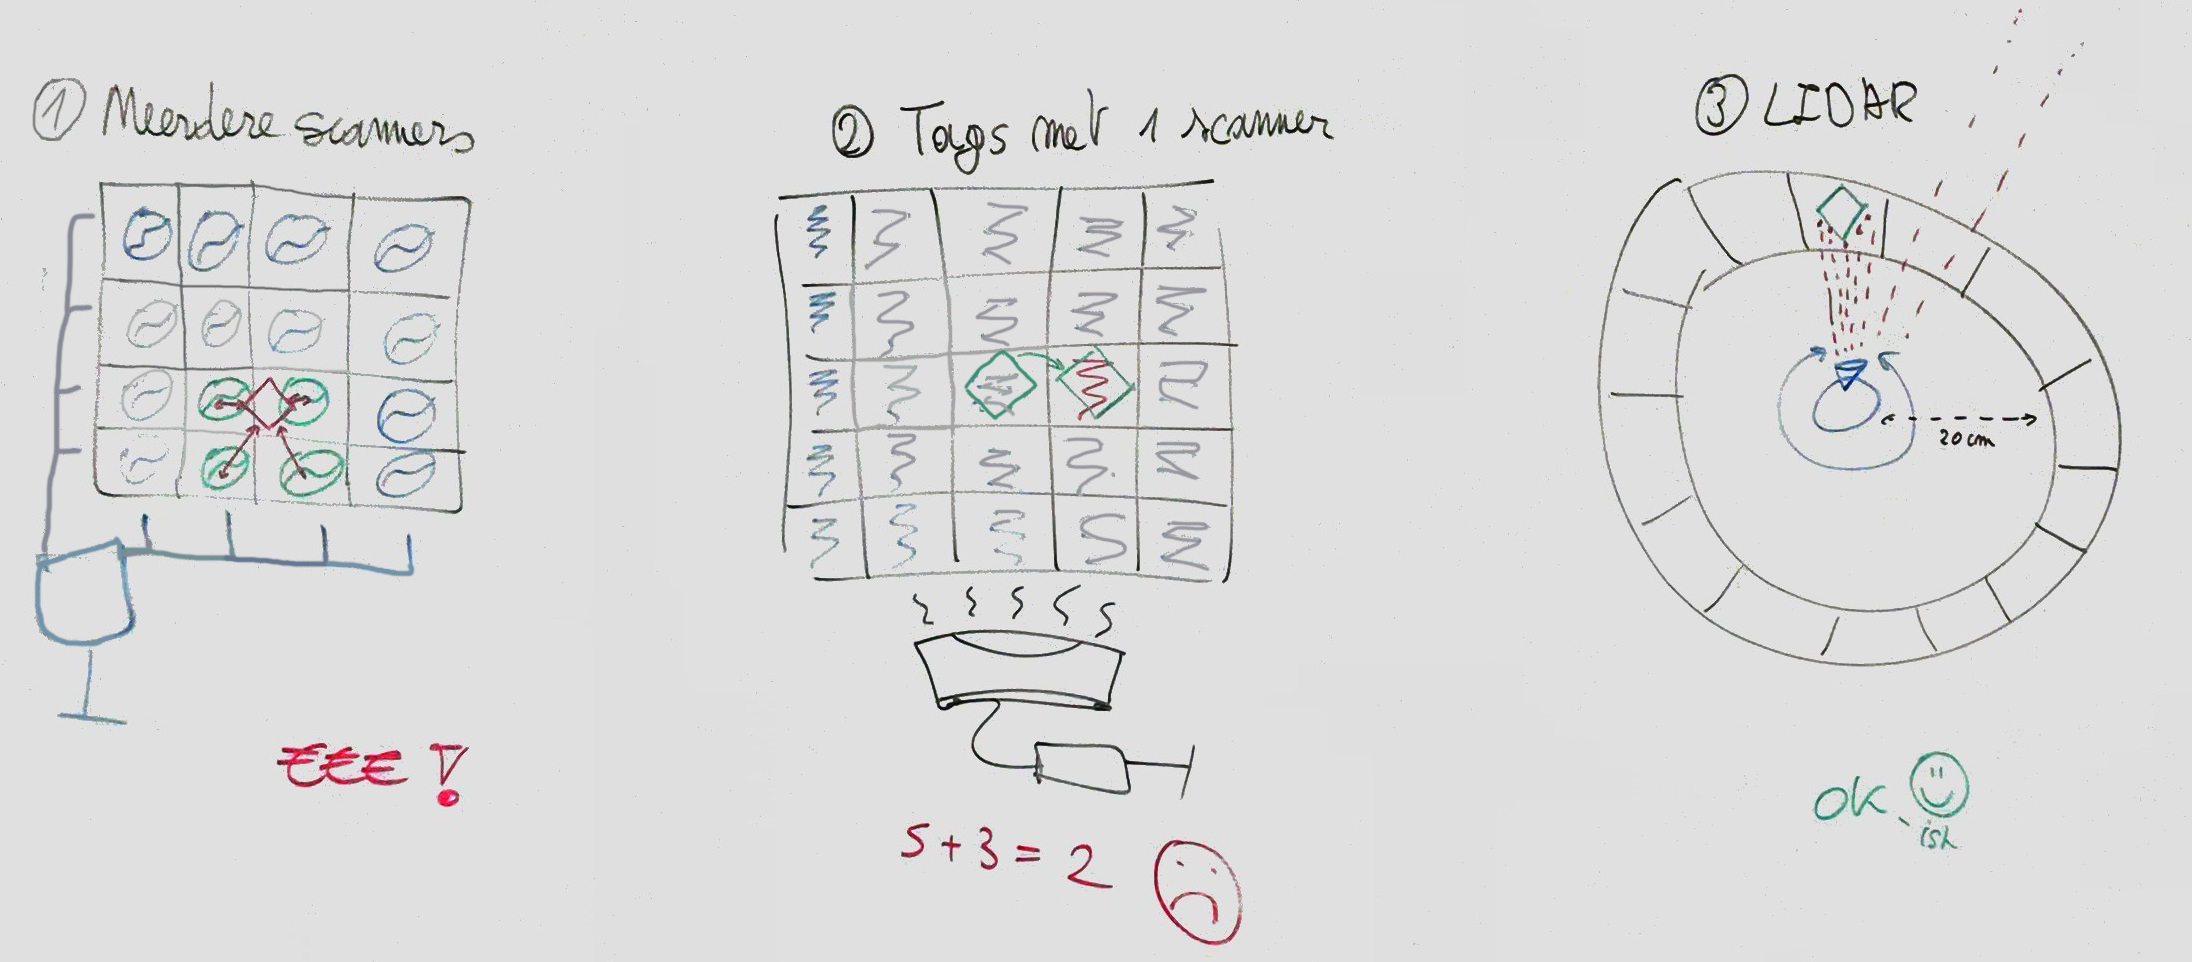 ① Meerdere scanners
② Tags met 1 scanner
③ LIDAR
20cm
€€€ !
5 + 3 = 2
ok-ish